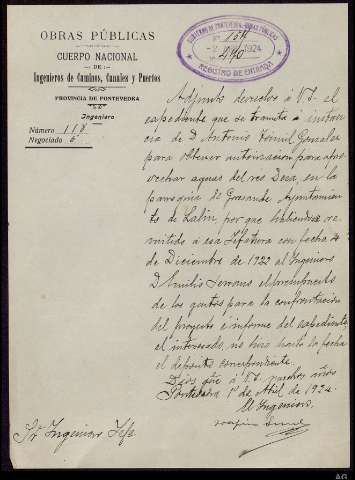 OBRAS PÚBLICAS
CUERPO NACIONAL
DE
Ingenieros de Caminos, Canales y Puertos
PROVINCIA DE PONTEVEDRA
Ingeniero
Número 118
Negociado 6º
GOBIERNO DE PONTEVEDRA-OBRAS PÚBLICAS
1924
240
REGISTRO DE ENTRADA
Adjunto devuelvo á V.S. el
expediente que se tramita á instan
cia de D. Antonio González
para obtener autorización para apro
vechar aguas del río Deza, en la
parroquia de Ayuntamien
to de Lalín, por que habiendose re
mitido á esa Jefatura con fecha
de Diciembre de 1922 al Ingeniero
D. Emilio el presupuesto
de los gastos para la confrontación
del proyecto é informe del expediente,
el interesado, no hizo hasta la fecha
el depósito correspondiente.
Dios gue á V.S. muchos años
Pontevedra 1º de Abril de 1924.
El Ingeniero,
Sr. Ingeniero Jefe
AG